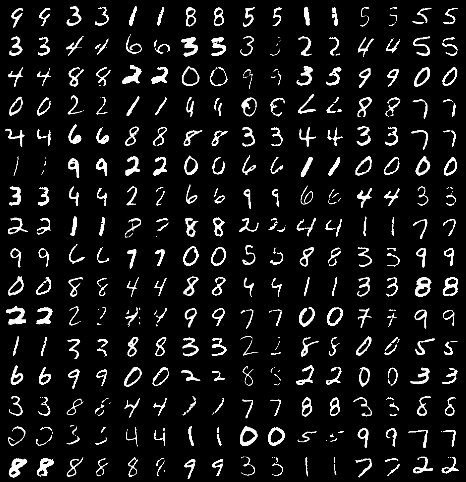 9 9 3 3 1 1 8 8 5 5 1 1 5 5 5 5
3 3 4 4 6 6 3 3 3 3 2 2 4 4 5 5
4 4 8 8 2 2 0 0 9 9 3 5 9 9 0 0
0 0 2 2 1 1 9 9 0 0 6 6 8 8 7 7
4 4 6 6 8 8 8 8 3 3 4 4 3 3 7 7
1 1 9 9 2 2 0 0 6 6 1 1 0 0 0 0
3 3 9 9 2 2 6 6 9 9 6 6 4 4 3 3
2 2 1 1 8 8 8 2 2 4 4 1 1 7 7
9 9 6 6 7 7 0 0 5 5 8 8 3 3 9 9
0 0 8 8 4 4 8 8 4 4 1 1 3 3 8 8
2 2 2 2 4 4 9 9 7 7 0 0 7 7 9 9
1 1 3 3 8 8 3 3 2 2 8 8 0 0 5 5
6 6 9 9 0 0 2 2 8 8 2 2 0 0 3 3
3 3 8 8 4 4 7 7 8 8 3 3 8 8
0 0 3 3 4 4 1 1 0 0 5 5 9 9 7 7
8 8 8 8 8 9 9 3 3 1 1 7 7 2 2